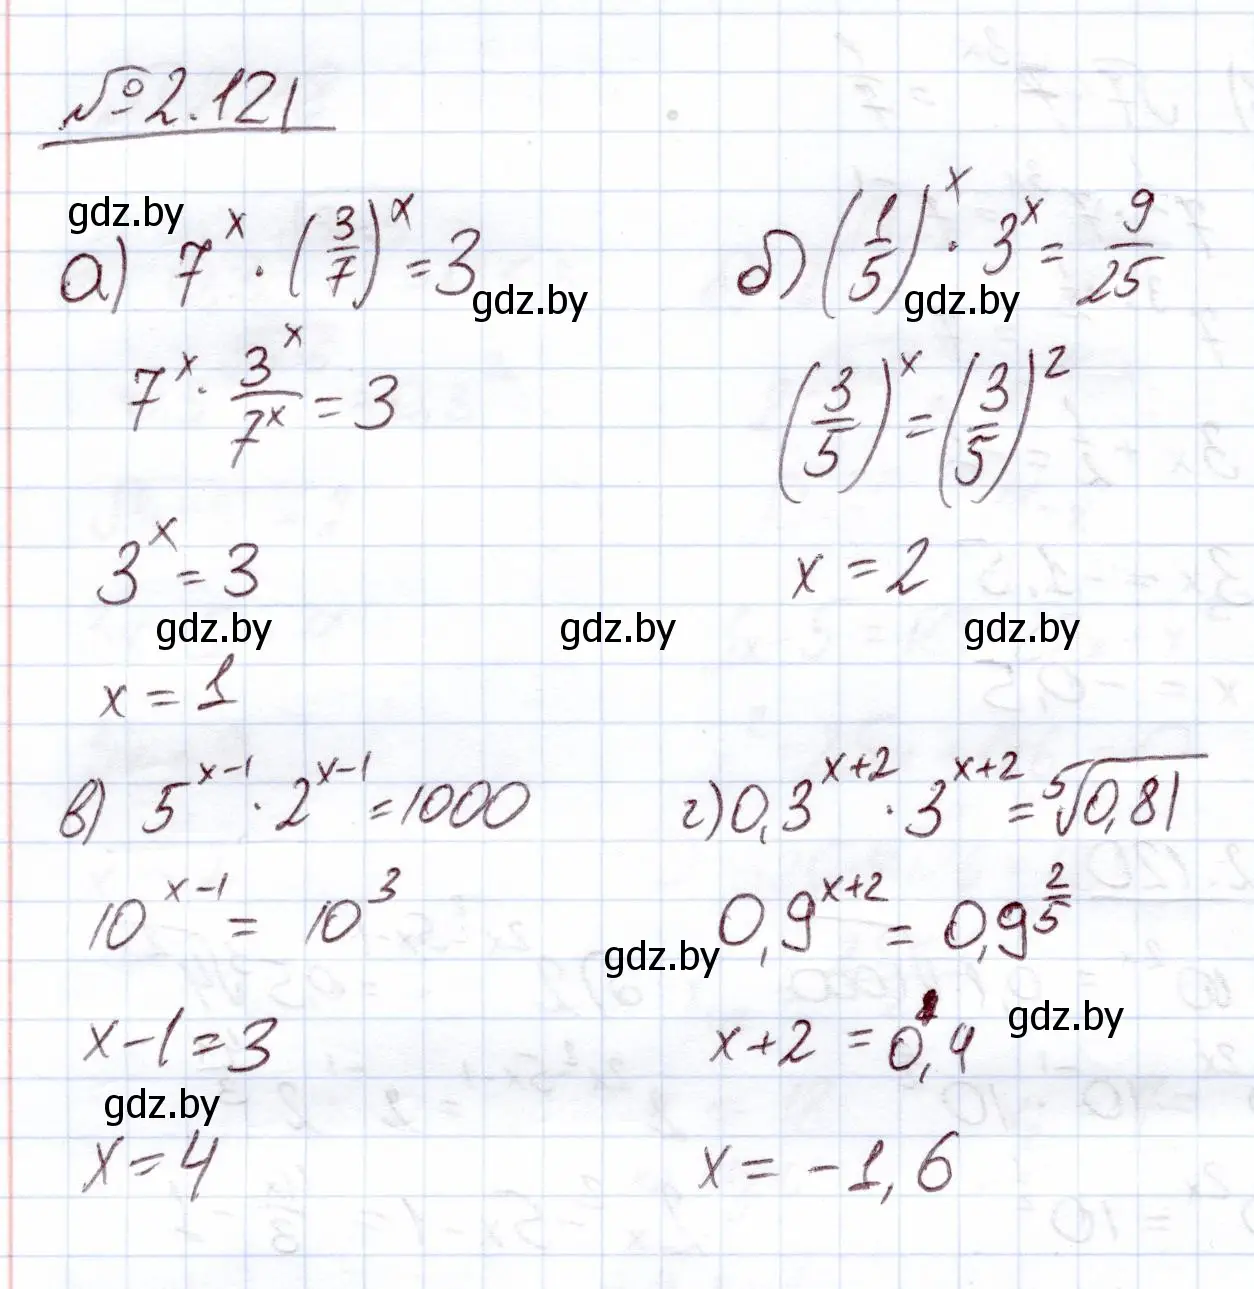 № 2.121
gdz.by
а) 7^x · (3/7)^x = 3
gdz.by
7^x · 3^x/7^x = 3
3^x = 3
gdz.by
x = 1
б) (1/5)^x · 3^x = 9/25
gdz.by
(3/5)^x = (3/5)^2
x = 2
gdz.by
gdz.by
в) 5^(x-1) · 2^(x-1) = 1000
10^(x-1) = 10^3
x - 1 = 3
gdz.by
x = 4
г) 0,3^(x+2) · 3^(x+2) = ⁵√0,81
0,9^(x+2) = 0,9^(2/5)
gdz.by
x + 2 = 0,4
gdz.by
x = -1,6